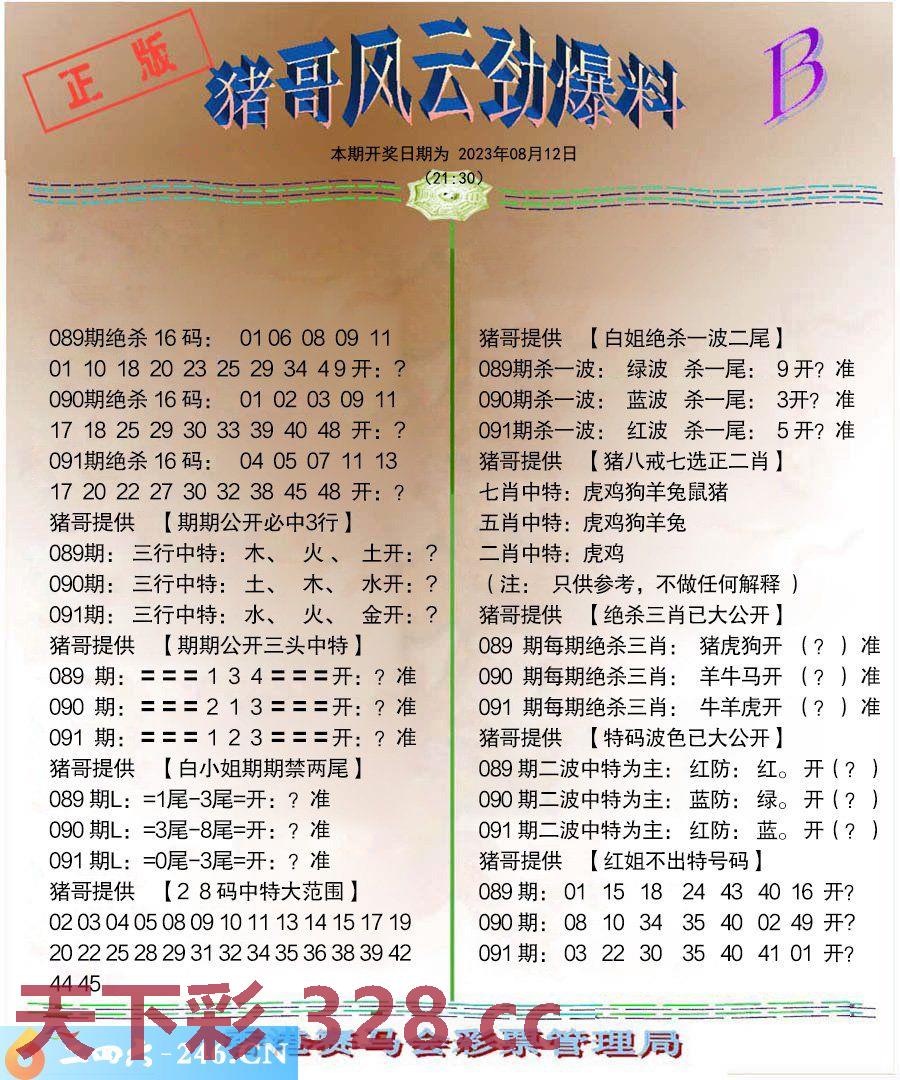 正版
猪哥风云劲爆料
B
本期开奖日期为 2023年08月12日
(21:30)
089期绝杀 16 码： 01 06 08 09 11
01 10 18 20 23 25 29 34 49 开：?
090期绝杀 16 码： 01 02 03 09 11
17 18 25 29 30 33 39 40 48 开：?
091期绝杀 16 码： 04 05 07 11 13
17 20 22 27 30 32 38 45 48 开：?
猪哥提供 【期期公开必中3行】
089期： 三行中特： 木、 火、 土开：?
090期： 三行中特： 土、 木、 水开：?
091期： 三行中特： 水、 火、 金开：?
猪哥提供 【期期公开三头中特】
089 期：===1 3 4===开：? 准
090 期：===2 1 3===开：? 准
091 期：===1 2 3===开：? 准
猪哥提供 【白小姐期期禁两尾】
089 期L：=1尾-3尾=开：? 准
090 期L：=3尾-8尾=开：? 准
091 期L：=0尾-3尾=开：? 准
猪哥提供 【28码中特大范围】
02 03 04 05 08 09 10 11 13 14 15 17 19
20 22 25 28 29 31 32 34 35 36 38 39 42
44 45
猪哥提供 【白姐绝杀一波二尾】
089期杀一波： 绿波 杀一尾： 9 开? 准
090期杀一波： 蓝波 杀一尾： 3开? 准
091期杀一波： 红波 杀一尾： 5 开? 准
猪哥提供 【猪八戒七选正二肖】
七肖中特：虎鸡狗羊兔鼠猪
五肖中特：虎鸡狗羊兔
二肖中特：虎鸡
（注： 只供参考，不做任何解释 ）
猪哥提供 【绝杀三肖已大公开】
089 期每期绝杀三肖： 猪虎狗开 （? ）准
090 期每期绝杀三肖： 羊牛马开 （? ）准
091 期每期绝杀三肖： 牛羊虎开 （? ）准
猪哥提供 【特码波色已大公开】
089 期二波中特为主：红防：红。开（? ）
090 期二波中特为主：蓝防：绿。开（? ）
091 期二波中特为主：红防：蓝。开（? ）
猪哥提供 【红姐不出特号码】
089 期： 01 15 18 24 43 40 16 开?
090 期： 08 10 34 35 40 02 49 开?
091 期： 03 22 30 35 40 41 01 开?
天下彩 328.cc
-246.CN
赛马会彩票管理局